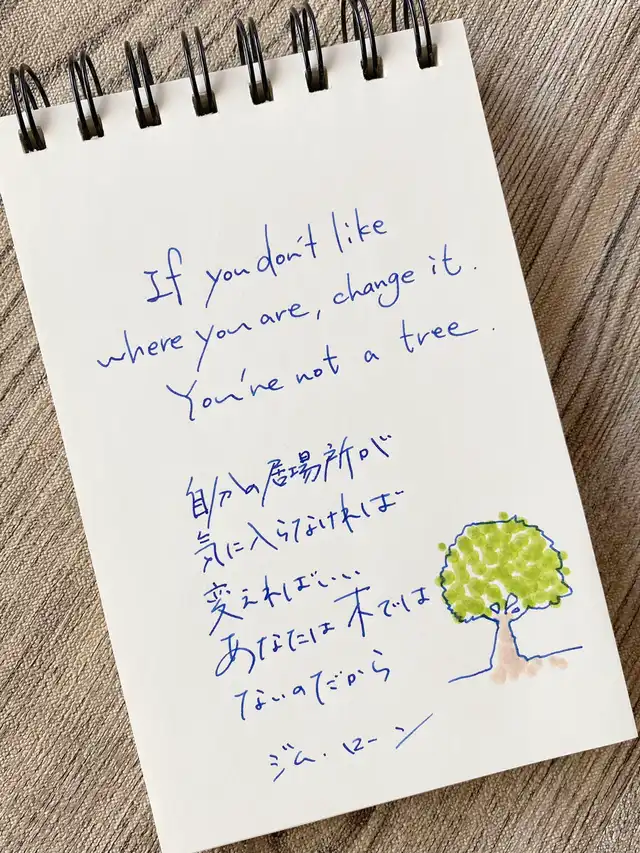 If you don't like
where you are, change it.
You're not a tree.
自分の居場所が
気に入らなければ
変えればいい
あなたは木では
ないのだから
ジム・ローン